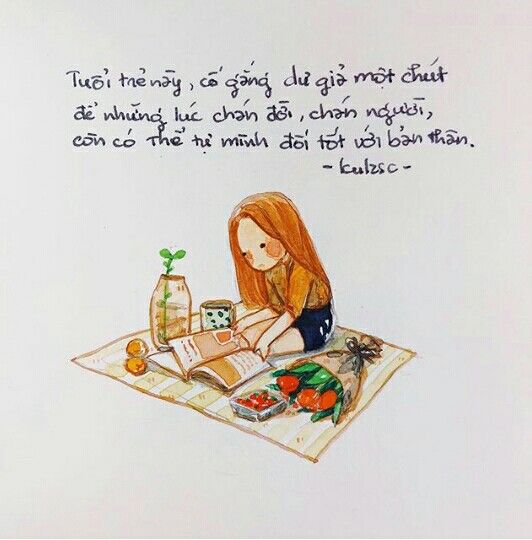 Tuổi trẻ này, cố gắng dư giả một chút
để những lúc chán đời, chán người,
còn có thể tự mình đối tốt với bản thân.
- kulzsc -